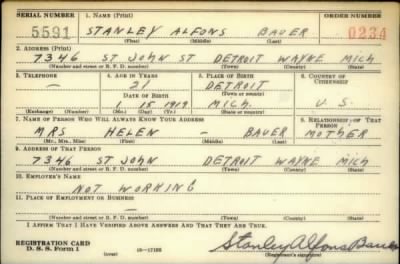 SERIAL NUMBER 1. NAME (Print) ORDER NUMBER
5591 STANLEY ALFONS BAUER 0234
(First) (Middle) (Last)
2. ADDRESS (Print)
7346 ST JOHN ST DETROIT WAYNE MICH
(Number and street or R. F. D. number) (Town) (County) (State)
3. TELEPHONE 4. AGE IN YEARS 5. PLACE OF BIRTH 6. COUNTRY OF CITIZENSHIP
— 21 DETROIT
DATE OF BIRTH (Town or county)
1 15 1919 MICH. U. S.
(Exchange) (Number) (Mo.) (Day) (Yr.) (State or country)
7. NAME OF PERSON WHO WILL ALWAYS KNOW YOUR ADDRESS 8. RELATIONSHIP OF THAT PERSON
MRS HELEN - BAUER MOTHER
(Mr., Mrs., Miss) (First) (Middle) (Last)
9. ADDRESS OF THAT PERSON
7346 ST JOHN DETROIT WAYNE MICH
(Number and street or R. F. D. number) (Town) (County) (State)
10. EMPLOYER'S NAME
NOT WORKING
11. PLACE OF EMPLOYMENT OR BUSINESS
—
(Number and street or R. F. D. number) (Town) (County) (State)
I AFFIRM THAT I HAVE VERIFIED ABOVE ANSWERS AND THAT THEY ARE TRUE.
REGISTRATION CARD
D. S. S. Form 1 (over) 16—17105 Stanley Alfons Bauer
(Registrant's signature)